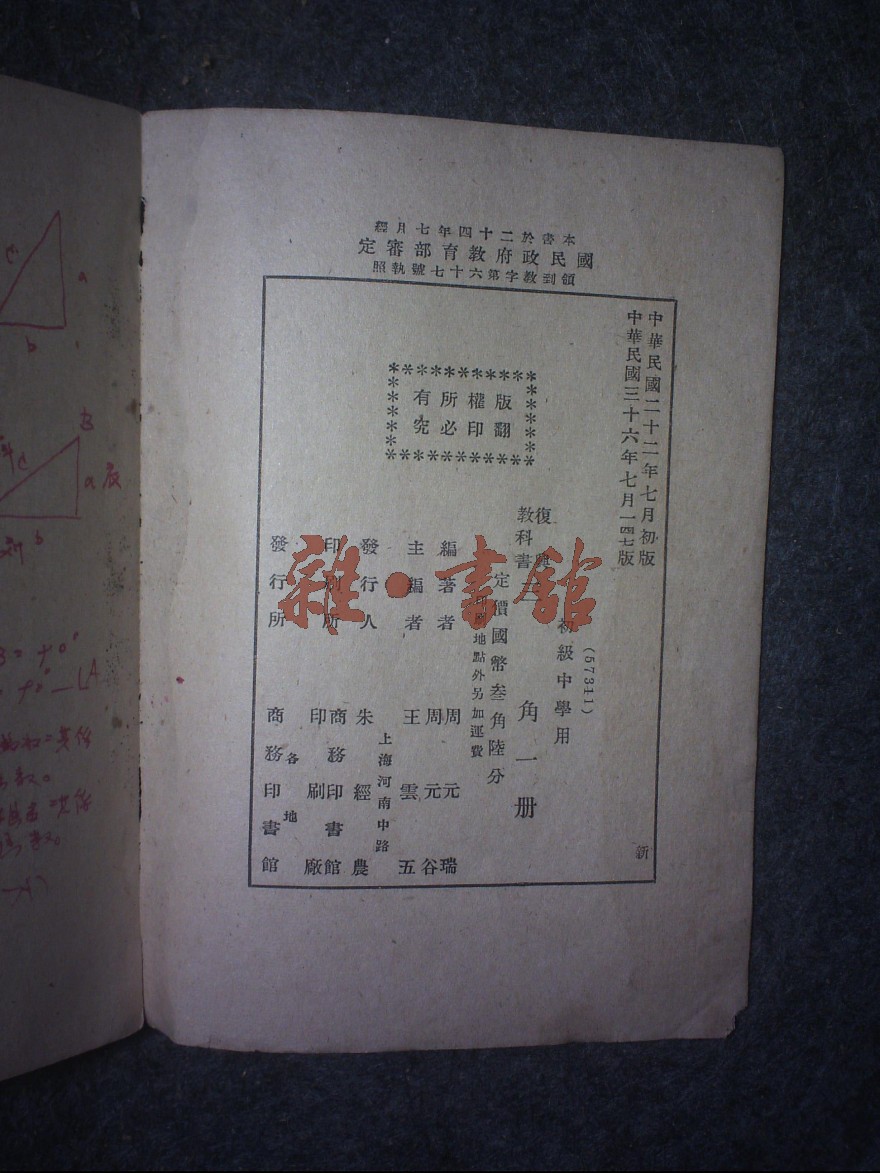 本書於二十四年七月經
國民政府教育部審定
領到教字第六十七號執照
中華民國二十二年七月初版
中華民國三十六年七月一四七版
版權所有
翻印必究
(57311)
初級中學用
復興
教科書
三角一冊
定價國幣叁角陸分
印刷地點外另加運費
編著者 周元瑞 周元谷
主編者 王雲五
發行人 朱經農
上海河南中路
印刷所 商務印書館 印刷廠
發行所 商務印書館
各地
新
雜·書館
C
a
b
B
C
a
b